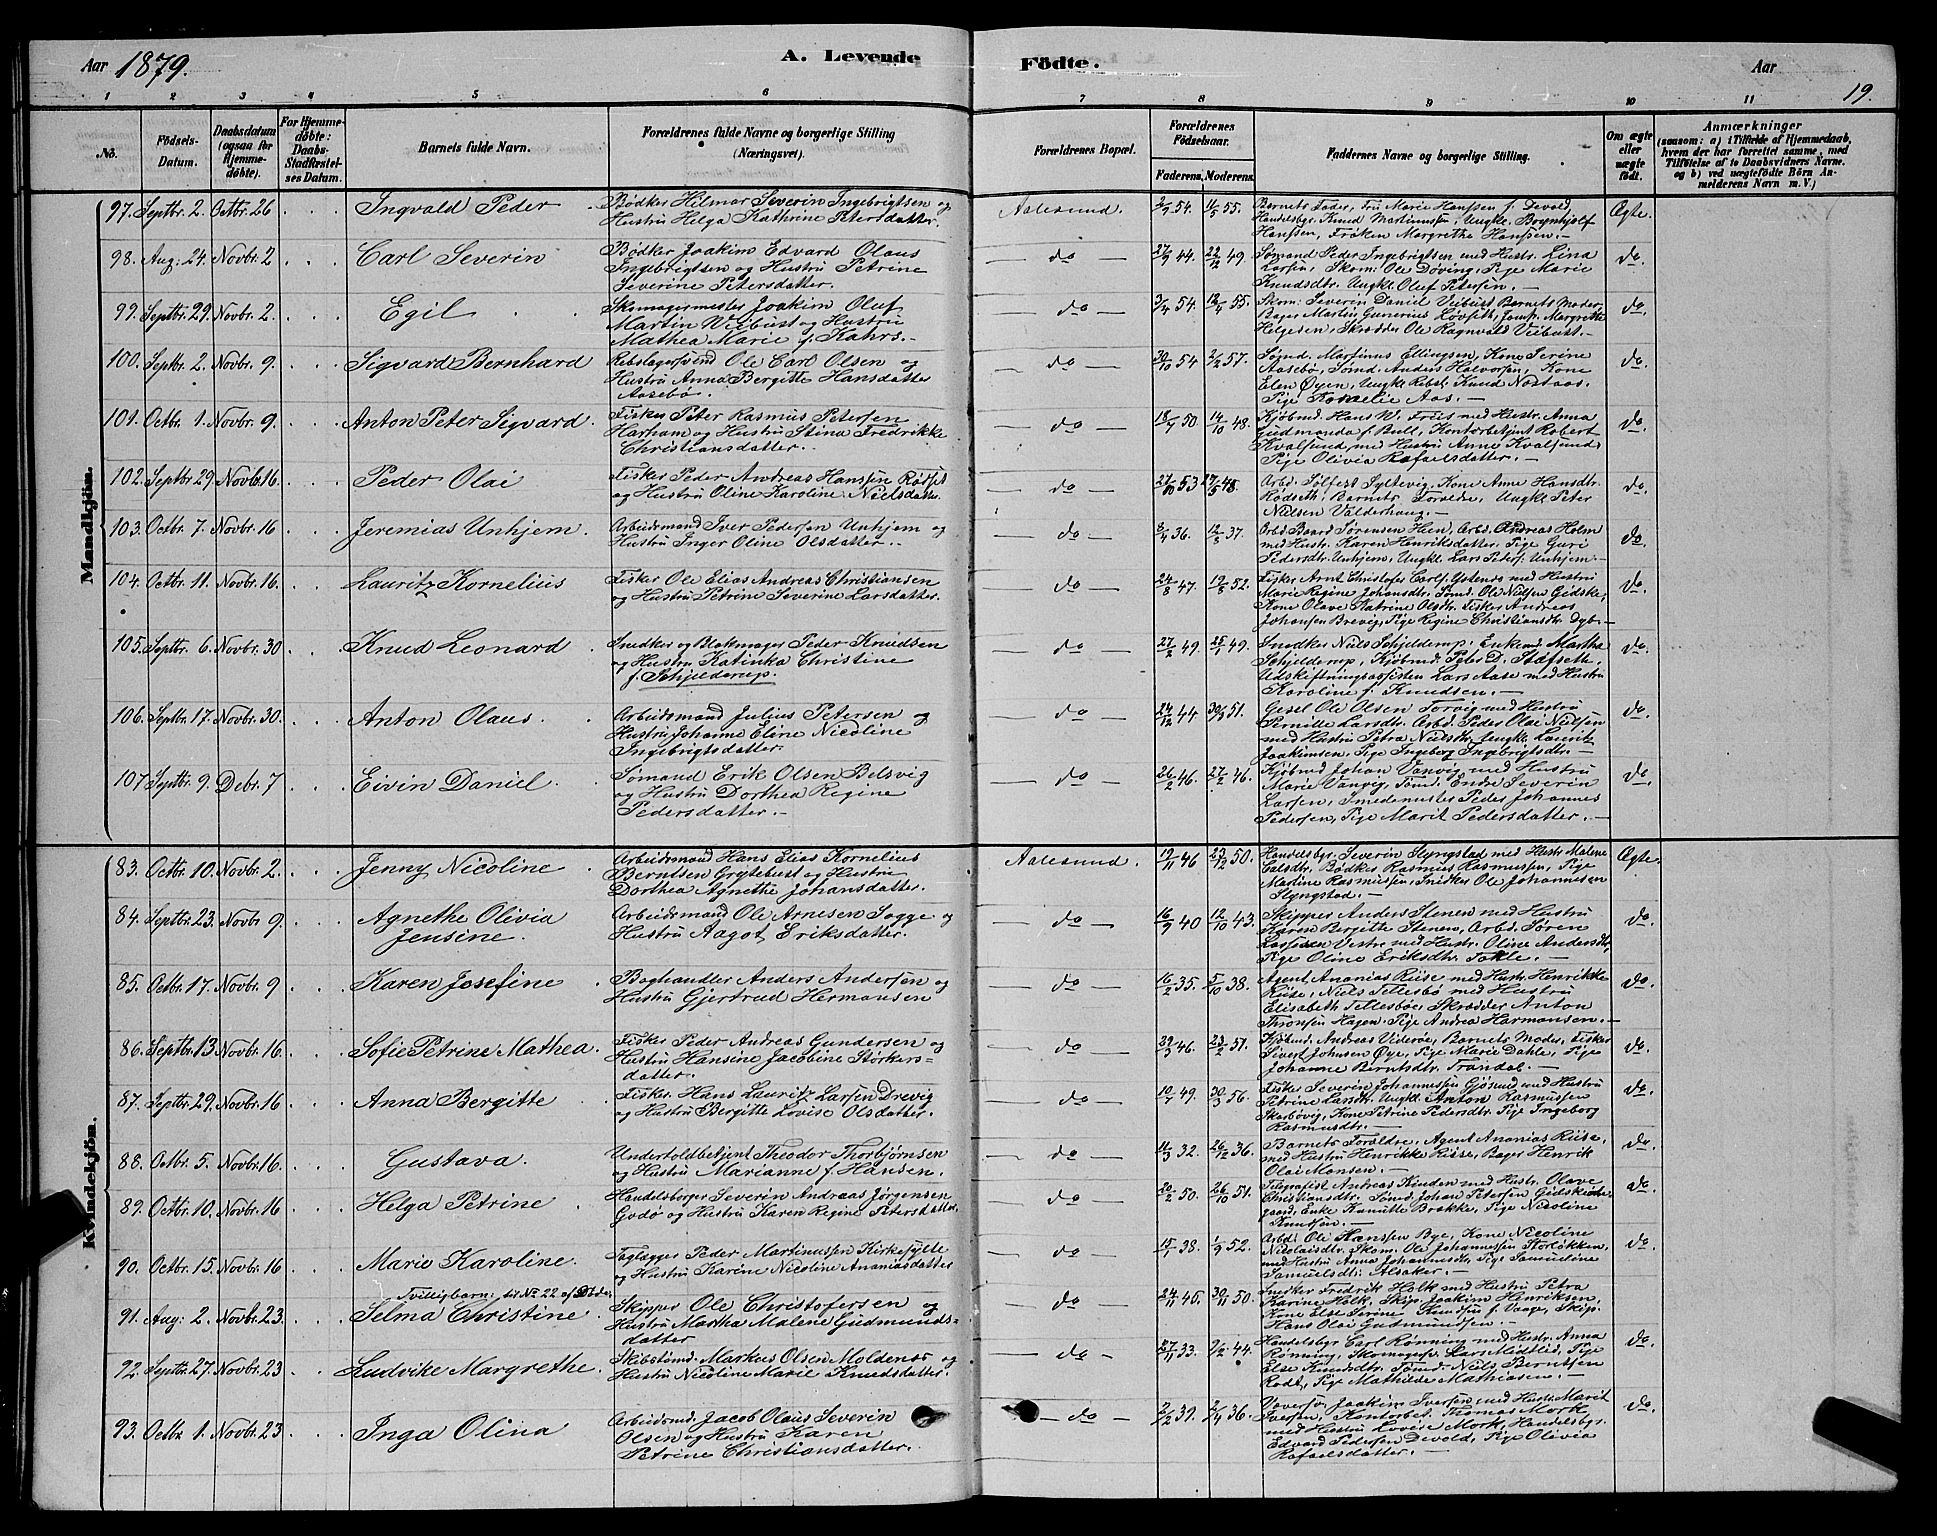 Aar 1879. A. Levende Födte. Aar 19.
1 2 3 4 5 6 7 8 9 10 11
No. Födsels-Datum. Daabsdatum (ogsaa for Hjemme-döbte). For Hjemme-döbte: Daabs-Stadfæstel-ses Datum. Barnets fulde Navn. Forældrenes fulde Navne og borgerlige Stilling (Næringsvei). Forældrenes Bopæl. Forældrenes Födselsaar. Faderens. Moderens. Faddernes Navne og borgerlige Stilling. Om ægte eller uægte födt. Anmærkninger (saasom: a) i Tilfælde af Hjemmedaab, hvem der har forrettet samme, med Tilföielse af to Daabsvidners Navne. og b) ved uægtefödte Börn An-melderens Navn m. V.)
Mandkjön.
97. Septbr. 2. Octbr. 26 Ingvald Peder Bødker Hilmar Severin Ingebrigtsen og Aalesund. 54. 55. Barnets Fader, Fru Marie Hanssen f. Devold, Ægte.
Hustru Helga Kathrine Petersdatter. Handelsbgr. Knud Martinussen, Ungkl. Brynhjolf
Hanssen, Frøken Margrethe Hanssen.
98. Aug: 24. Novbr. 2 Carl Severin Bødker Joakim Edvard Olaus do 27/9 44. 22/12 49. Sømand Peder Ingebrigtsen med Hustr. Lina do.
Ingebrigtsen og Hustru Petrine Larsen, Skom. Ole Døving, Pige Marie
Severine Petersdatter. Knudsdtr. Ungkl. Oluf Petersen.
99. Septbr. 29. Novbr. 2. Egil Skomagermester Joakim Oluf do 3/4 54. 12/4 55. Skom: Severin Daniel Veibust Barnets Moder, do.
Martin Veibust og Hustru Bager Martin Gunerius Løvseth, Jomf. Margrethe
Mathea Marie f. Kahrs. Helgesen, Skrædder Ole Ragnvald Veibust.
100. Septbr. 2. Novbr. 9. Sigvard Bernhard Rebslagersvend Ole Carl Olsen og do 30/10 54 2/2 57. Sømd. Martinus Ellingsen, Kone Serine do.
Hustru Anna Bergitte Hansdatter Aasebø, Sømd. Anders Halvorsen, Kone
Aasebø. Elen Øyen, Ungkl. Rebsl. Knud
Pige Kornelie Aas.
101. Octbr. 1. Novbr. 9. Anton Peter Sigvard. Fisker Peter Rasmus Petersen do 18/7 50 14/10 48. Kjøbmd. Hans W. Friis med Hustr. Anna do.
Harham og Hustru Stina Fredrikke Gudmonda f. Bull, Kontorbetjent Robert
Christiansdatter. Kvalsund med Hustru Anne Kvalsund,
Pige Olivia Rafaelsdatter.
102. Septbr 29. Novbr. 16. Peder Olai Fisker Peder Andreas Hansen Rødset do 27/10 53 48. Arb. Sylfest Syltevig, Kone Anne Hansdtr. do
og Hustru Oline Karoline Nielsdatter Rødseth, Barnets Forældre, Ungkl. Peter
Nielsen Valderhaug.
103. Octbr. 7. Novbr. 16 Jeremias Unhjem. Arbeidsmand Iver Pedersen Unhjem og do 36. 12/8 37. Arb. Baard Sørensen Hien, Arb. Andreas Holm do
Hustru Inger Oline Olsdatter. med Hustr. Karen Henriksdatter, Pige Guri
Pedersdtr Unhjem, Ungkl. Lars Peters. Unhjem.
104. Octbr. 11. Novbr. 16. Lauritz Kornelius Fisker Ole Elias Andreas Christiansen do 24/8 47. 19/8 52. Fisker Arnt Christofer Carls. Ystenes med Hustru do.
og Hustru Petrine Severine Larsdatter. Marie Regine Johansdtr. Sømd. Ole Nielsen Gidske,
Kone Olave Katrine Olsdtr. Fisker Andreas
Johansen Brevig, Pige Regine Christiansdtr. Dyb.
105. Septbr. 6. Novbr. 30 Knud Leonard Snedker og Blokmager Peder Knudsen do 27/2 49. 25/1 49. Snedker Niels Schjelderup, Enkemd. Martha do.
og Hustru Katinka Christine Schjelderup, Kjøbmd. Peter D. Stafseth,
f. Schjelderup. Udskiftningsassistent Lars Aase med Hustru
Karoline f. Knudsen.
106. Septbr. 17. Novbr. 30. Anton Olaus. Arbeidsmand Julius Petersen og do 24/12 44 51. Gesel Ole Olsen Torvig med Hustru do.
Hustru Johanne Eline Nicoline Pernille Larsdtr. Arbd. Peder Olai Nielsen
Ingebrigtsdatter. med Hustru Petra Nielsdtr. Ungkl. Lauritz
Joakimsen, Pige Ingeborg Ingebrigtsdtr.
107 Septbr. 9. Debr. 7 Eivin Daniel. Sømand Erik Olsen Belsvig do 26/2 46. 27/2 46. Kjøbmd Johan Vanvig med Hustru do.
og Hustru Dorthea Regine Marie Vanvig, Sømd. Endre Severin
Pedersdatter. Larsen, Smedemester Peder Johannes
Pedersen, Pige Marit Pedersdatter.
Kvindekjön.
83. Octbr. 10. Novbr. 2. Jenny Nicoline Arbeidsmand Hans Elias Kornelius Aalesund. 19/11 46 23/12 50. Handelsbgr. Severin Slyngstad med Hustr. Malene Ægte.
Berntsen Grytebust og Hustru Calsdtr. Bødker Rasmus Rasmussen, Pige
Dorthea Agnethe Johansdatter. Martine Rasmussen, Snidker Ole Johannesen
Slyngstad.
84. Septbr. 23. Novbr 9. Agnethe Olivia Jensine. Arbeidsmand Ole Arnesen Sogge og do 16/9 40 12/10 43. Skipper Anders Stenen med Hustru do
Hustru Aagot Eriksdatter. Karen Bergitte Stenen, Arbd. Søren
Larsen Vestre med Hustr. Oline Andersdtr,
Pige Oline Eriksdtr. Tokle.
85. Octbr. 17. Novbr. 9 Karen Josefine Boghandler Anders Andersen og do 16/2 35. 5/10 38. Agent Ananias Riise med Hustr. Henrikke do.
Hustru Gjertrud Hermansen Riise, Niels Tellesbø med Hustru
Elisabeth Tellesbøe, Skrædder Anton
Thronsen Hagen, Pige Andrea Harmansen.
86. Septbr. 13 Novbr. 16. Sofie Petrine Mathea. Fisker Peder Andreas Gundersen og do 29/3 46. 23/2 51. Kjøbmd. Andreas Viderøe, Barnets Moder, Fisker do
Hustru Hansine Jacobine Størkers-datter. Sivert Johnsen Øye, Pige Marie Dahle, Pige
Johanne Berntsdtr. Trandal.
87. Septbr. 29. Novbr. 16 Anna Bergitte Fisker Hans Lauritz Larsen Drevig do 10/7 49. 30/3 56. Fisker Severin Johannessen Gjøsund med Hustru do.
og Hustru Bergitte Lovise Olsdatter. Petrine Larsdtr. Ungkl. Anton Rasmussen
Skarbøvig, Kone Petrine Pedersdtr. Pige Ingeborg
Rasmusdtr.
88. Octbr. 5. Novbr. 16. Gustava. Underholdbetjent Theodor Thorbjørnsen do 11/3 32. 26/12 36. Barnets Forældre, Agent Ananias Riise do.
og Hustru Marianne f. Hansen. med Hustru Henrikke Riise, Bager Henrik
Olai Monsen.
89. Octbr. 10. Novbr. 16 Helga Petrine Handelsborger Severin Andreas Jørgensen do 20/2 50. 26/10 51. Telegrafist Andreas Kinden med Hustr. Olave do.
Godø og Hustru Karen Regine Petersdatter. Christiansdtr. Sømd. Johan Petersen Gidskehoug-
gaard, Enke Kanutte Brække, Pige Nicoline
Knutsen.
90. Octbr. 15. Novbr. 16 Marie Karoline. Taglægger Peder Martinussen Kirkefylte do 15/1 38. 1/9 52. Arbd. Ole Hanssen Bye, Kone Nicoline do.
og Hustru Karine Nicoline Ananiasdatter Nicolaisdtr. Skom. Ole Johannessen Storløkken,
med Hustru Anna Johannesdtr, Pige Samueline
Samuelsdtr. Alsaker.
Tvillingbarn: til No. 22 af Døde.
91. Aug: 2. Novbr. 23. Selma Christine Skipper Ole Christofersen og do 24/11 46. 30/11 50. Snedker Fredrik Holk med Hustru Petra do
Hustru Martha Malene Gudmunds-datter Karine Holk, Skip. Joakim Henriksen,
Kone Else Serine Knudsen f. Vaage, Skip.
Hans Olai Gudmundsen.
92. Septbr. 27. Novbr. 23 Ludvike Margrethe. Skibstømd. Markus Olsen Moldenes og do 27/11 33. 9/2 44. Handelsbgr. Carl Rønning med Hustr. Anna do.
Hustru Nicoline Marie Knudsdatter. Rønning, Skomagersv. Lars Midtlid, Pige
Else Knudsdtr. Tømd. Niels Berntsen
Rodt, Pige Mathilde Mathiasen.
93. Octbr. 1. Novbr. 23 Inga Olina Arbeidsmd. Jacob Olaus Severin do 2/2 39. 2/4 36. Joakim Iversen med Hustr. Marit do.
Olsen og Hustru Karen Iversen, Kontorbet. Thomas Mork
Petrine Christiansdatter. med Hustru Lovise Mork, Handelsbgr.
Edvard Pedersen Devold, Pige Olivia
Rafaelsdatter.